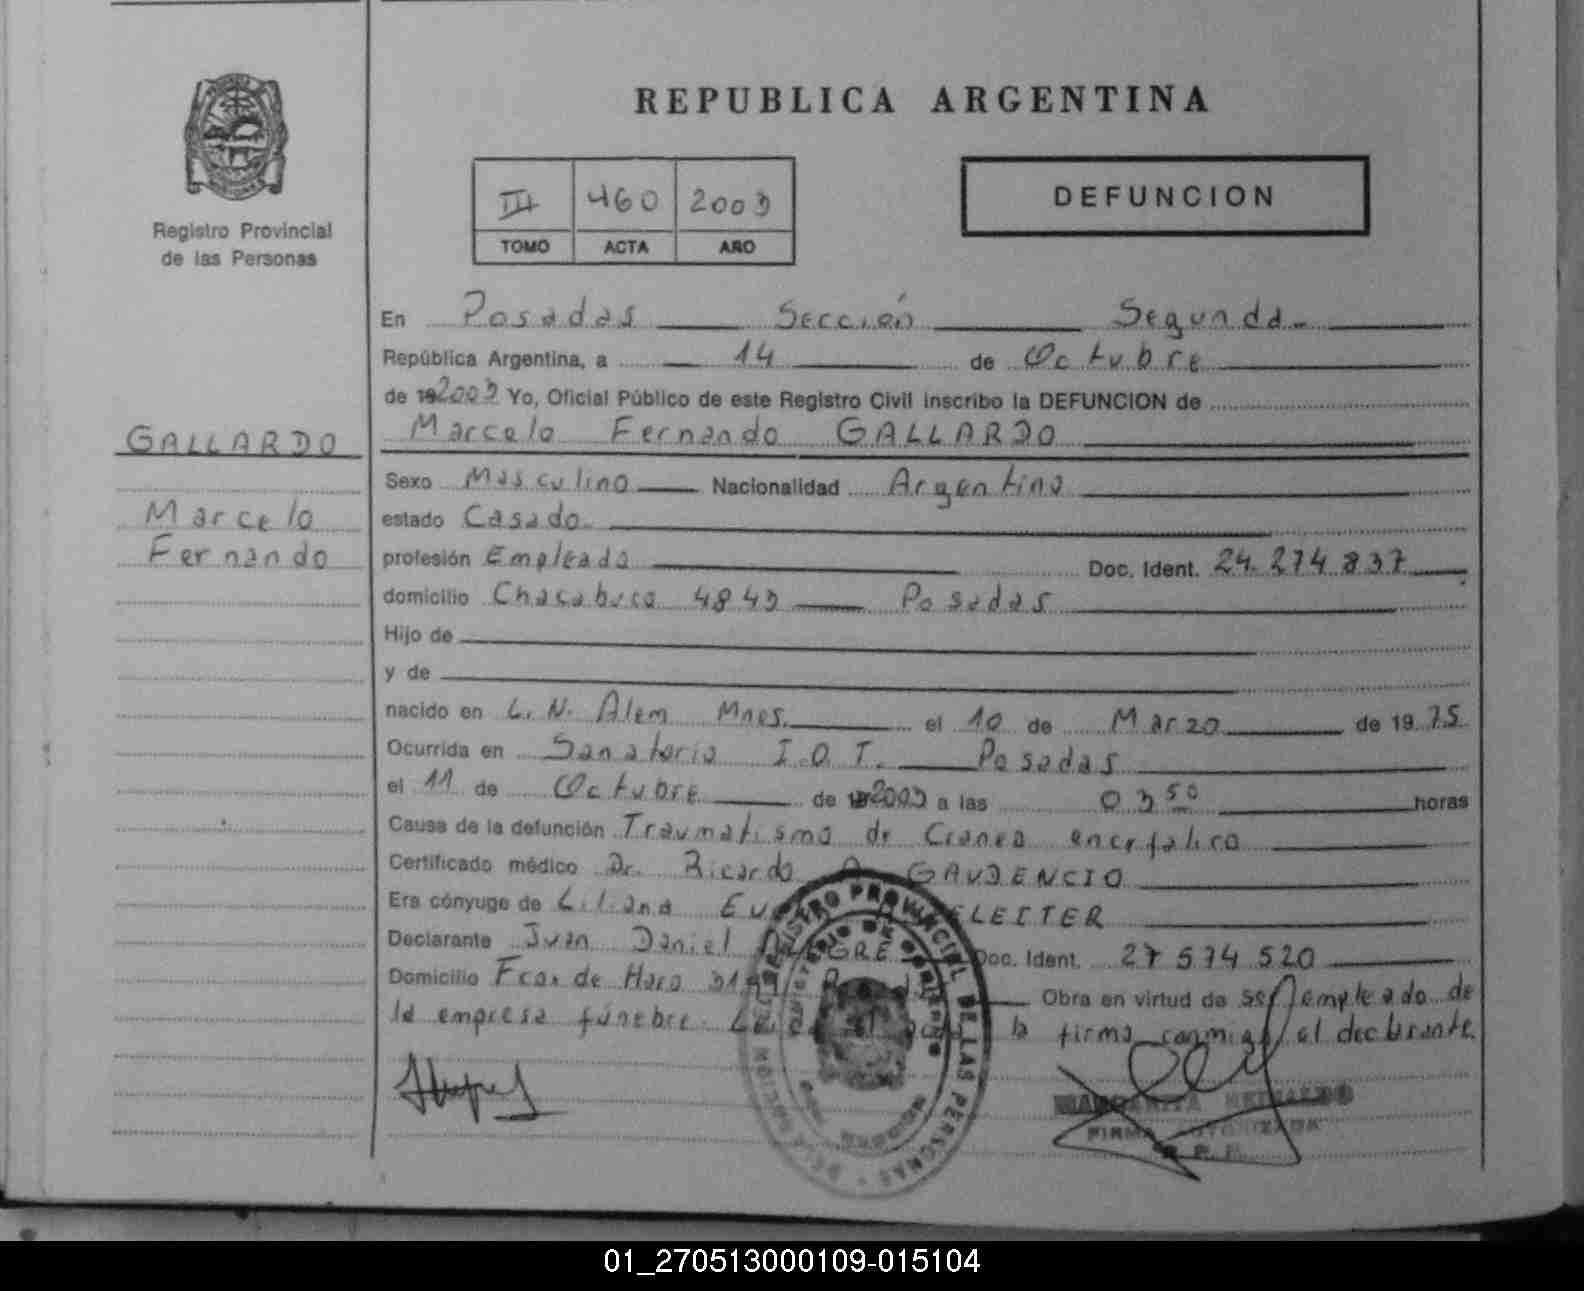 REPUBLICA ARGENTINA
Registro Provincial
de las Personas
III 460 2003
TOMO ACTA AÑO
DEFUNCION
En Posadas Sección Segunda
República Argentina, a 14 de Octubre
de 19 2003 Yo, Oficial Público de este Registro Civil inscribo la DEFUNCION de
GALLARDO
Marcelo
Fernando
Marcelo Fernando GALLARDO
Sexo Masculino Nacionalidad Argentina
estado Casado
profesión Empleado Doc. Ident. 24.274.837
domicilio Chacabuco 4843 Posadas
Hijo de
y de
nacido en L. N. Alem Mnes. el 10 de Marzo de 19 75
Ocurrida en Sanatorio I.O.T. Posadas
el 11 de Octubre de 2003 a las 03 50 horas
Causa de la defunción Traumatismo de Craneo encefalico
Certificado médico Dr. Ricardo GAUDENCIO
Era cónyuge de Liliana
Declarante Juan Daniel Doc. Ident. 27 574 520
Domicilio Fco. de Haro Obra en virtud de ser empleado de
la empresa fúnebre la firma conmigo el declarante
REGISTRO PROVINCIAL DE LAS PERSONAS
FIRMA AUTORIZADA
01_270513000109-015104